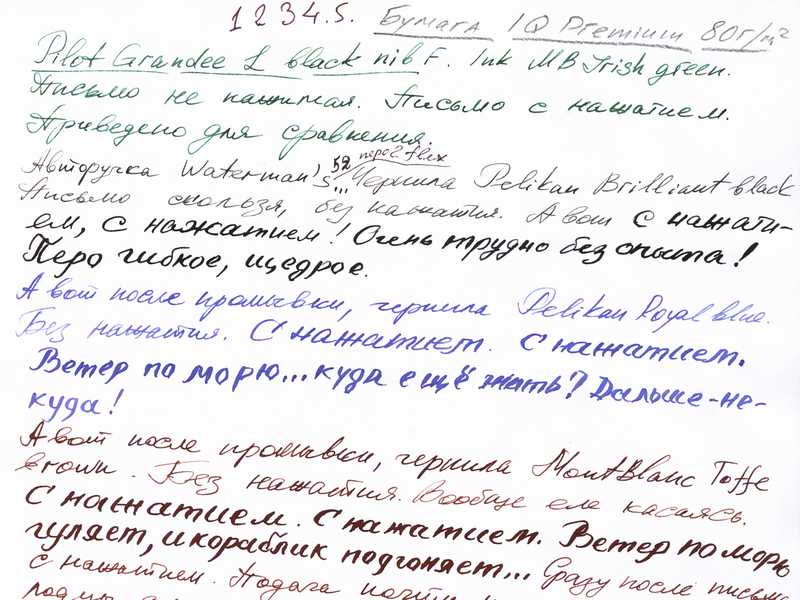 1 2 3 4. 5. Бумага IQ Premium 80г/м²
Pilot Grandee L black nib F. Ink MB Irish green.
Письмо не нажимая. Письмо с нажатием.
Приведено для сравнения.
Авторучка Waterman's 52 перо 2 flex ... Чернила Pelikan Brilliant black
Письмо скользя, без нажатия. А вот с нажати-
ем, с нажатием! Очень трудно без опыта!
Перо гибкое, щедрое.
А вот после промывки, чернила Pelikan Royal blue.
Без нажатия. С нажатием. С нажатием.
Ветер по морю... куда ещё жать? Дальше-не-
куда!
А вот после промывки, чернила MontBlanc Toffe
brown. Без нажатия. Вообще еле касаясь.
С нажатием. С нажатием. Ветер по морю
гуляет, и кораблик подгоняет... Сразу после письма
с нажатием. Подача почти